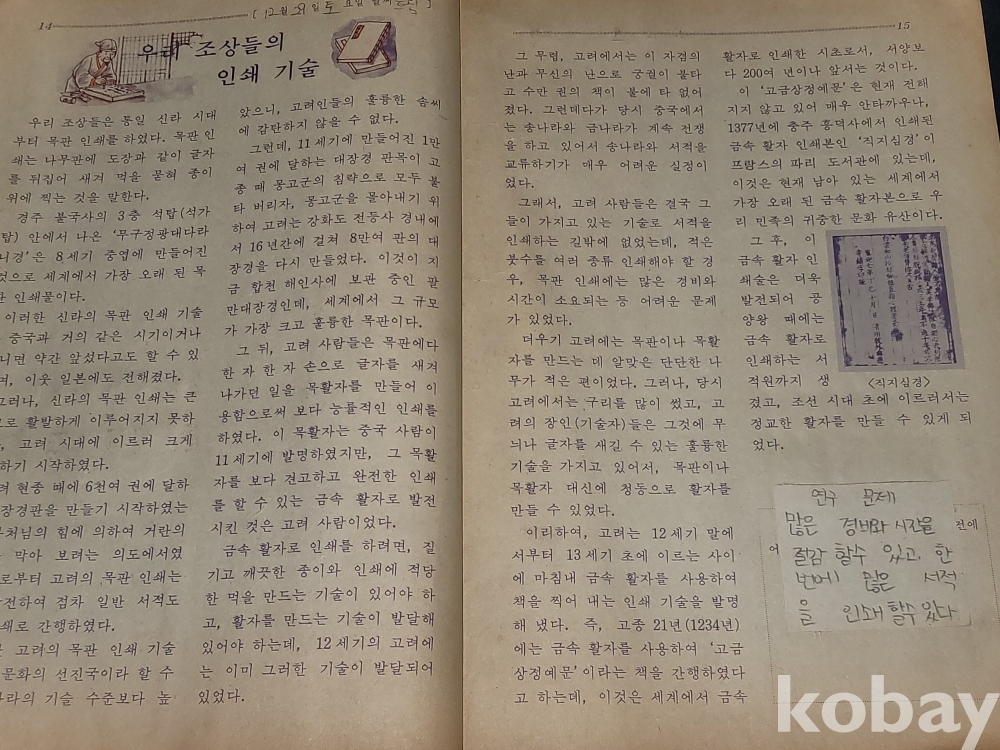 14
[ 12월 29일 토 요일
우리 조상들의
인쇄 기술
우리 조상들은 통일 신라 시대
부터 목판 인쇄를 하였다. 목판 인
쇄는 나무판에 도장과 같이 글자
를 뒤집어 새겨 먹을 묻혀 종이
위에 찍는 것을 말한다.
경주 불국사의 3층 석탑(석가
탑) 안에서 나온 '무구정광대다라
니경'은 8세기 중엽에 만들어진
것으로 세계에서 가장 오래 된 목
판 인쇄물이다.
이러한 신라의 목판 인쇄 기술
중국과 거의 같은 시기이거나
니면 약간 앞섰다고도 할 수 있
며, 이웃 일본에도 전해졌다.
그러나, 신라의 목판 인쇄는 큰
로 활발하게 이루어지지 못하
, 고려 시대에 이르러 크게
하기 시작하였다.
려 현종 때에 6천여 권에 달하
장경판을 만들기 시작하였는
부처님의 힘에 의하여 거란의
막아 보려는 의도에서였
로부터 고려의 목판 인쇄는
전하여 점차 일반 서적도
쇄로 간행하였다.
고려의 목판 인쇄 기술
문화의 선진국이라 할 수
나라의 기술 수준보다 높
았으니, 고려인들의 훌륭한 솜씨
에 감탄하지 않을 수 없다.
그런데, 11세기에 만들어진 1만
여 권에 달하는 대장경 판목이 고
종 때 몽고군의 침략으로 모두 불
타 버리자, 몽고군을 몰아내기 위
하여 고려는 강화도 전등사 경내에
서 16년간에 걸쳐 8만여 판의 대
장경을 다시 만들었다. 이것이 지
금 합천 해인사에 보관 중인 팔
만대장경인데, 세계에서 그 규모
가 가장 크고 훌륭한 목판이다.
그 뒤, 고려 사람들은 목판에다
한 자 한 자 손으로 글자를 새겨
나가던 일을 목활자를 만들어 이
용함으로써 보다 능률적인 인쇄를
하였다. 이 목활자는 중국 사람이
11세기에 발명하였지만, 그 목활
자를 보다 견고하고 완전한 인쇄
를 할 수 있는 금속 활자로 발전
시킨 것은 고려 사람이었다.
금속 활자로 인쇄를 하려면, 질
기고 깨끗한 종이와 인쇄에 적당
한 먹을 만드는 기술이 있어야 하
고, 활자를 만드는 기술이 발달해
있어야 하는데, 12세기의 고려에
는 이미 그러한 기술이 발달되어
있었다.
15
그 무렵, 고려에서는 이 자겸의
난과 무신의 난으로 궁궐이 불타
고 수만 권의 책이 불에 타 없어
졌다. 그런데다가 당시 중국에서
는 송나라와 금나라가 계속 전쟁
을 하고 있어서 송나라와 서적을
교류하기가 매우 어려운 실정이
었다.
그래서, 고려 사람들은 결국 그
들이 가지고 있는 기술로 서적을
인쇄하는 길밖에 없었는데, 적은
붓수를 여러 종류 인쇄해야 할 경
우, 목판 인쇄에는 많은 경비와
시간이 소요되는 등 어려운 문제
가 있었다.
더우기 고려에는 목판이나 목활
자를 만드는 데 알맞은 단단한 나
무가 적은 편이었다. 그러나, 당시
고려에서는 구리를 많이 썼고, 고
려의 장인(기술자)들은 그것에 무
늬나 글자를 새길 수 있는 훌륭한
기술을 가지고 있어서, 목판이나
목활자 대신에 청동으로 활자를
만들 수 있었다.
이리하여, 고려는 12세기 말에
서부터 13세기 초에 이르는 사이
에 마침내 금속 활자를 사용하여
책을 찍어 내는 인쇄 기술을 발명
해 냈다. 즉, 고종 21년(1234년)
에는 금속 활자를 사용하여 '고금
상정예문'이라는 책을 간행하였다
고 하는데, 이것은 세계에서 금속
활자로 인쇄한 시초로서, 서양보
다 200여 년이나 앞서는 것이다.
이 '고금상정예문'은 현재 전해
지지 않고 있어 매우 안타까우나,
1377년에 충주 흥덕사에서 인쇄된
금속 활자 인쇄본인 '직지심경'이
프랑스의 파리 도서관에 있는데,
이것은 현재 남아 있는 세계에서
가장 오래 된 금속 활자본으로 우
리 민족의 귀중한 문화 유산이다.
그 후, 이
금속 활자 인
쇄술은 더욱
발전되어 공
양왕 때에는
금속 활자로
인쇄하는 서
적원까지 생
겼고, 조선 시대 초에 이르러서는
정교한 활자를 만들 수 있게 되
었다.
<직지심경>
연구 문제
많은 경비와 시간을
절감 할수 있고, 한
번에 많은 서적
을 인쇄 할수 있다
전에
어
kobay